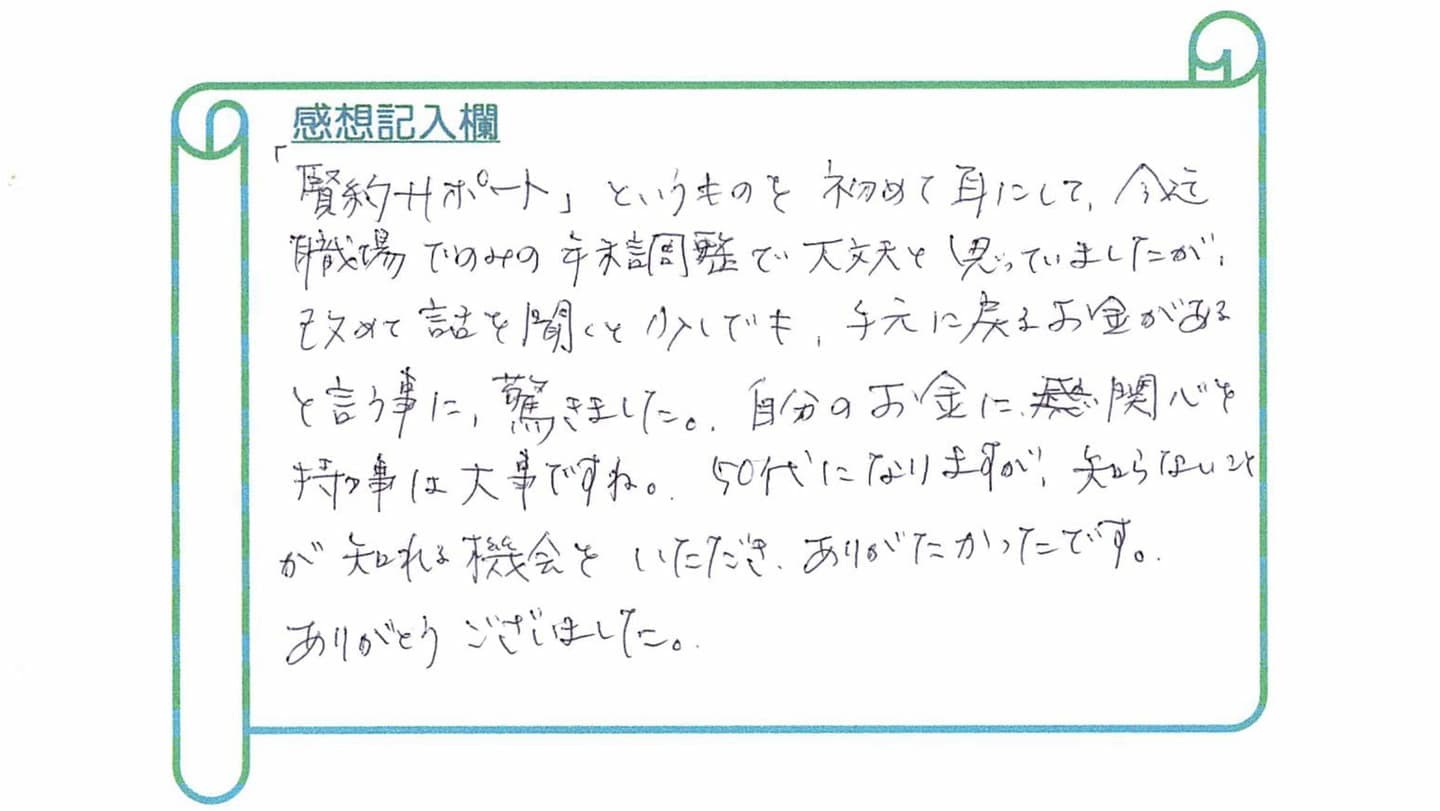 感想記入欄
「賢約サポート」というものを初めて耳にして、今迄
職場でのみの年末調整で大丈夫と思っていましたが、
改めて話を聞くと少しでも、手元に戻るお金がある
と言う事に、驚きました。自分のお金に関心を
持つ事は大事ですね。50代になりますが、知らないこと
が知れる機会をいただき、ありがたかったです。
ありがとうございました。